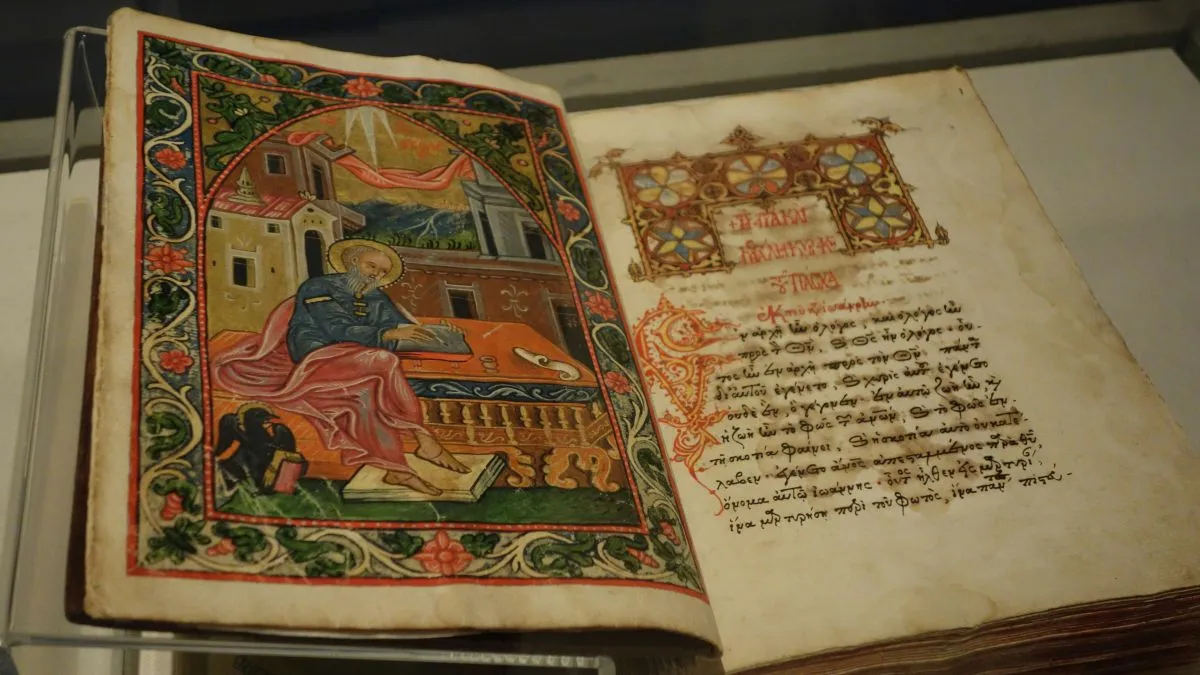 + ΤΗ ΑΓΙΑ ΚΑΙ
ΜΕΓΑΛΗ ΚΥΡΙΑΚΗ
ΤΟΥ ΠΑΣΧΑ
ἐκ τοῦ κατὰ ἰωάννην
Ἐν ἀρχῇ ἦν ὁ λόγος, καὶ ὁ λόγος ἦν
πρὸς τὸν θν, καὶ θς ἦν ὁ λόγος· οὗ-
τος ἦν ἐν ἀρχῇ πρὸς τὸν θν· πάντα
δι' αὐτοῦ ἐγένετο, καὶ χωρὶς αὐτοῦ ἐγένετο
οὐδὲ ἕν, ὃ γέγονεν· ἐν αὐτῷ ζωὴ ἦν, καὶ
ἡ ζωὴ ἦν τὸ φῶς τῶν ἀνων, καὶ τὸ φῶς ἐν
τῇ σκοτίᾳ φαίνει, καὶ ἡ σκοτία αὐτὸ οὐ κατέ-
λαβεν· ἐγένετο ἀνος ἀπεσταλμένος παρὰ θυ,
ὄνομα αὐτῷ ἰωάννης· οὗτος ἦλθεν εἰς μαρτυρίαν,
ἵνα μαρτυρήσῃ περὶ τοῦ φωτός, ἵνα πάντες πιστεύ-